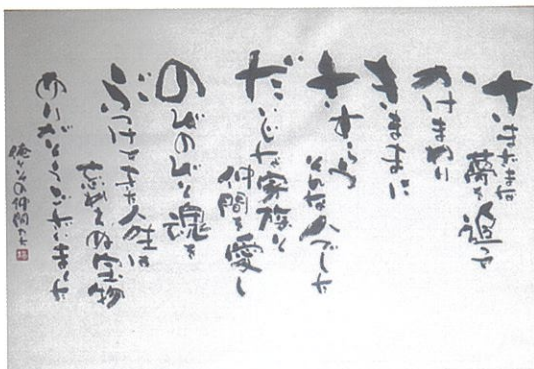 さまざまな
夢を追って
かけまわり
きままに
さすらう
そんな人でした
だいじな家族と
仲間を愛し
のびのびと魂を
ぶつけてきた人生は
忘れえぬ宝物
ありがとうございました
俺とその仲間たち